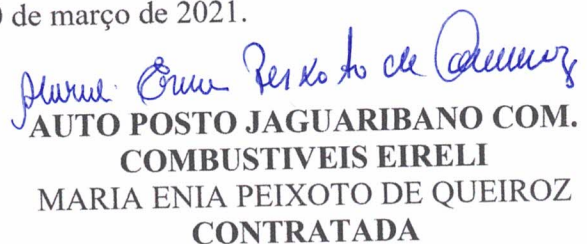 de março de 2021.
Maria Enia Peixoto de Queiroz
AUTO POSTO JAGUARIBANO COM.
COMBUSTIVEIS EIRELI
MARIA ENIA PEIXOTO DE QUEIROZ
CONTRATADA